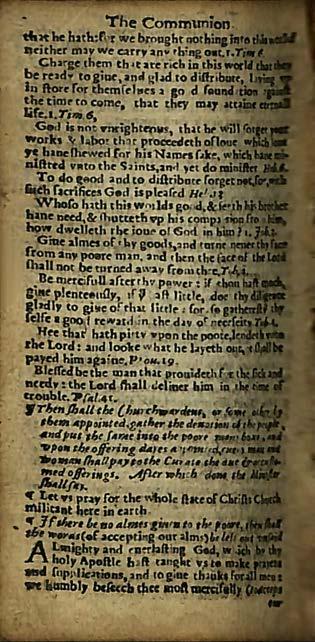 The Communion.
that he hath: for we brought nothing into this world
neither may we carry any thing out. 1. Tim 6.
Charge them that are rich in this world that they
be ready to giue, and glad to distribute, laying vp
in store for themselues a good foundation against
the time to come, that they may attaine eternall
life. 1. Tim, 6,
God is not vnrighteous, that he will forget your
works & labor that proceedeth of loue which loue
ye haue shewed for his Names sake, which haue mi-
nistred vnto the Saints, and yet do minister Heb. 6.
To do good and to distribute forget not, for, with
such sacrifices God is pleased He. 13
Whoso hath this worlds good, & seeth his brother
haue need, & shutteth vp his compassion from him,
how dwelleth the loue of God in him? 1. Joh. 3.
Giue almes of thy goods, and turne neuer thy face
from any poore man, and then the face of the Lord
shall not be turned away from thee, Tob. 4.
Be mercifull after thy power: if thou hast much,
giue plenteously, if yu hast little, doe thy diligence
gladly to giue of that little: for so gatherest thy
selfe a good reward in the day of necessity Tob 4.
Hee that hath pitty vpon the poore, lendeth vnto
the Lord: and looke what he layeth out, it shall be
payed him againe. Prou. 19.
Blessed be the man that prouideth for the sick and
needy: the Lord shall deliuer him in the time of
trouble. Psal. 41.
¶ Then shall the Churchwardens, or some other by
them appointed, gather the deuotion of the people,
and put the same into the poore mens boxe, and
vpon the offering dayes appointed, euery man and
woman shall pay to the Curate the due & accusto-
med offerings. After which done the Minister
shall say.
¶ Let vs pray for the whole state of Christs Church
militant here in earth.
¶ If there be no almes giuen to the poore, then shall
the words (of accepting our alms) be left out vnsaid
Almighty and euerlasting God, which by thy
holy Apostle hast taught vs to make prayers
and supplications, and to giue thanks for all men:
we humbly beseech thee most mercifully (to accept
our